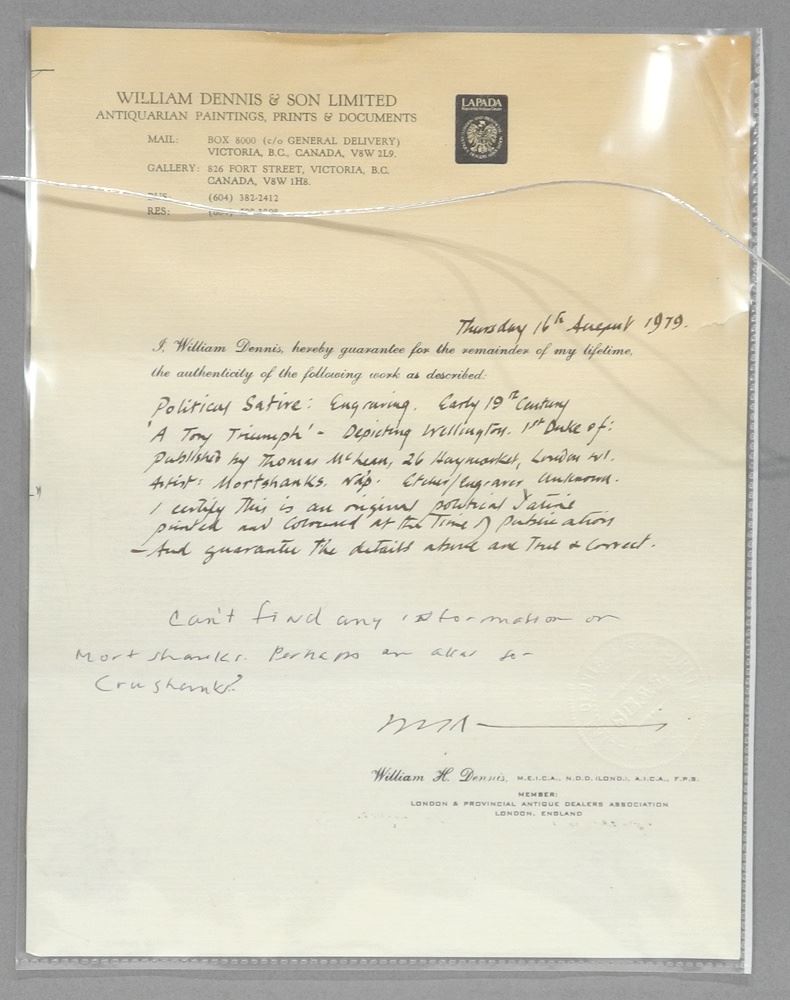 WILLIAM DENNIS & SON LIMITED
ANTIQUARIAN PAINTINGS, PRINTS & DOCUMENTS
LAPADA
MAIL: BOX 8000 (c/o GENERAL DELIVERY)
VICTORIA, B.C., CANADA, V8W 2L9.
GALLERY: 826 FORT STREET, VICTORIA, B.C.
CANADA, V8W 1H8.
BUS: (604) 382-2412
RES: (604)
Thursday 16th August 1979.
I, William Dennis, hereby guarantee for the remainder of my lifetime,
the authenticity of the following work as described:
Political Satire: Engraving. Early 19th Century
'A Tory Triumph' - Depicting Wellington. 1st Duke of:
Published by Thomas McLean, 26 Haymarket, London W1.
Artist: Mortshanks. Ndp. Etcher/engraver unknown.
I certify this is an original political satire
printed and coloured at the time of publication
- And guarantee the details above are True & Correct.
Can't find any information on
Mortshanks. Perhaps an alias for
Crushank?
William H. Dennis, M.E.I.C.A., N.D.D. (LOND.), A.I.C.A., F.R.S.
MEMBER:
LONDON & PROVINCIAL ANTIQUE DEALERS ASSOCIATION
LONDON, ENGLAND